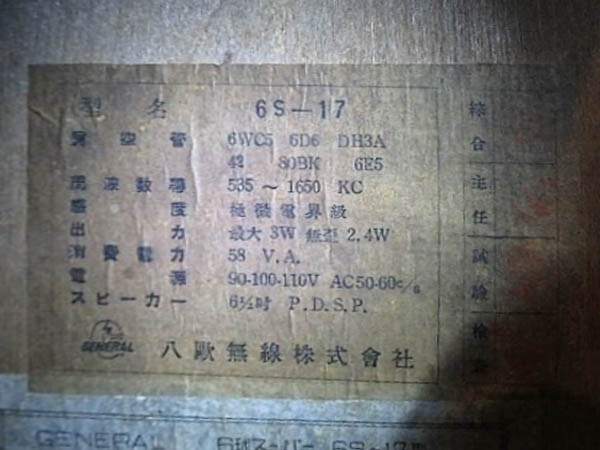 型名 6S-17
真空管 6WC5 6D6 DH3A
42 80BK 6E5
周波数帯 535～1650 KC
感度 極微電界級
出力 最大3W 無歪2.4W
消費電力 58 V.A.
電源 90-100-110V AC50-60c/s
スピーカー 6½吋 P.D.S.P.
GENERAL 八歐無線株式會社
綜合
主任
試驗
検査
GENERAL 6球スーパー 6S-17型